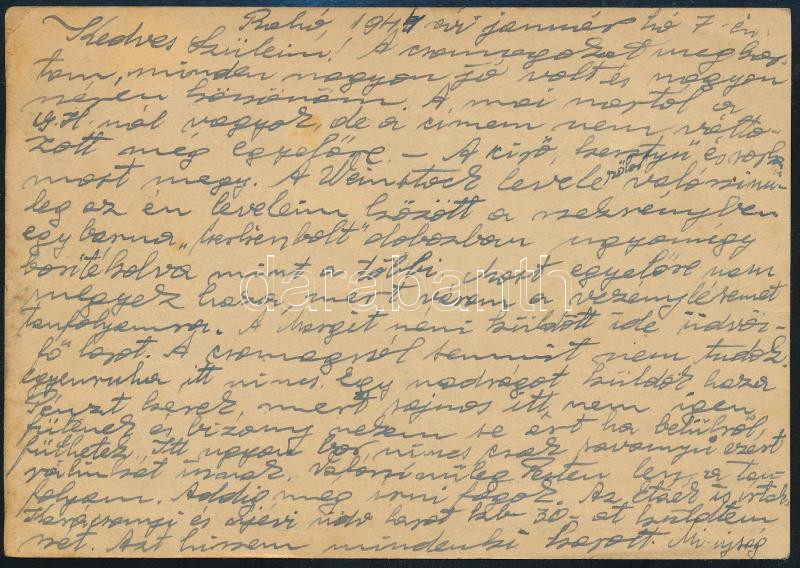 Rahó, 1944 évi január hó 7-én.
Kedves Szüleim! A csomagokat megkap-
tam, minden nagyon jó volt és nagyon
szépen köszönöm. A mai naptól a
vagyok, de a címem nem válto-
zott még egyefőre. - A cipő, kesztyű és
most megy. A Weinstock levele valószinü-
leg az én leveleim között a szekrényben
egy barna dobozban ugyanúgy
boritékolva mint a többi. Most egyefőre nem
megyek haza, mert várom a vezénylésemet
tanfolyamra. A Margit néni küldött ide üdvöz-
lő lapot. A csomagról semmit nem tudok.
egyenruha itt nincs. Egy nadrágot küldök haza
Pénzt kérek, mert sajnos itt nem igen
fűtenek és bizony nekem se árt ha belülről
fűthetek. Itt ugyan bor nincs csak savanyú ezért
pálinkát isznak. Valószinüleg Pesten lesz a tan-
folyam. Addig még irni fogok. Az is irtak.
Karácsonyi és újévi üdv. lapot kb 30-at küldtem
szét. Azt hiszem mindenki kapott. Mi újság
darabanth.com